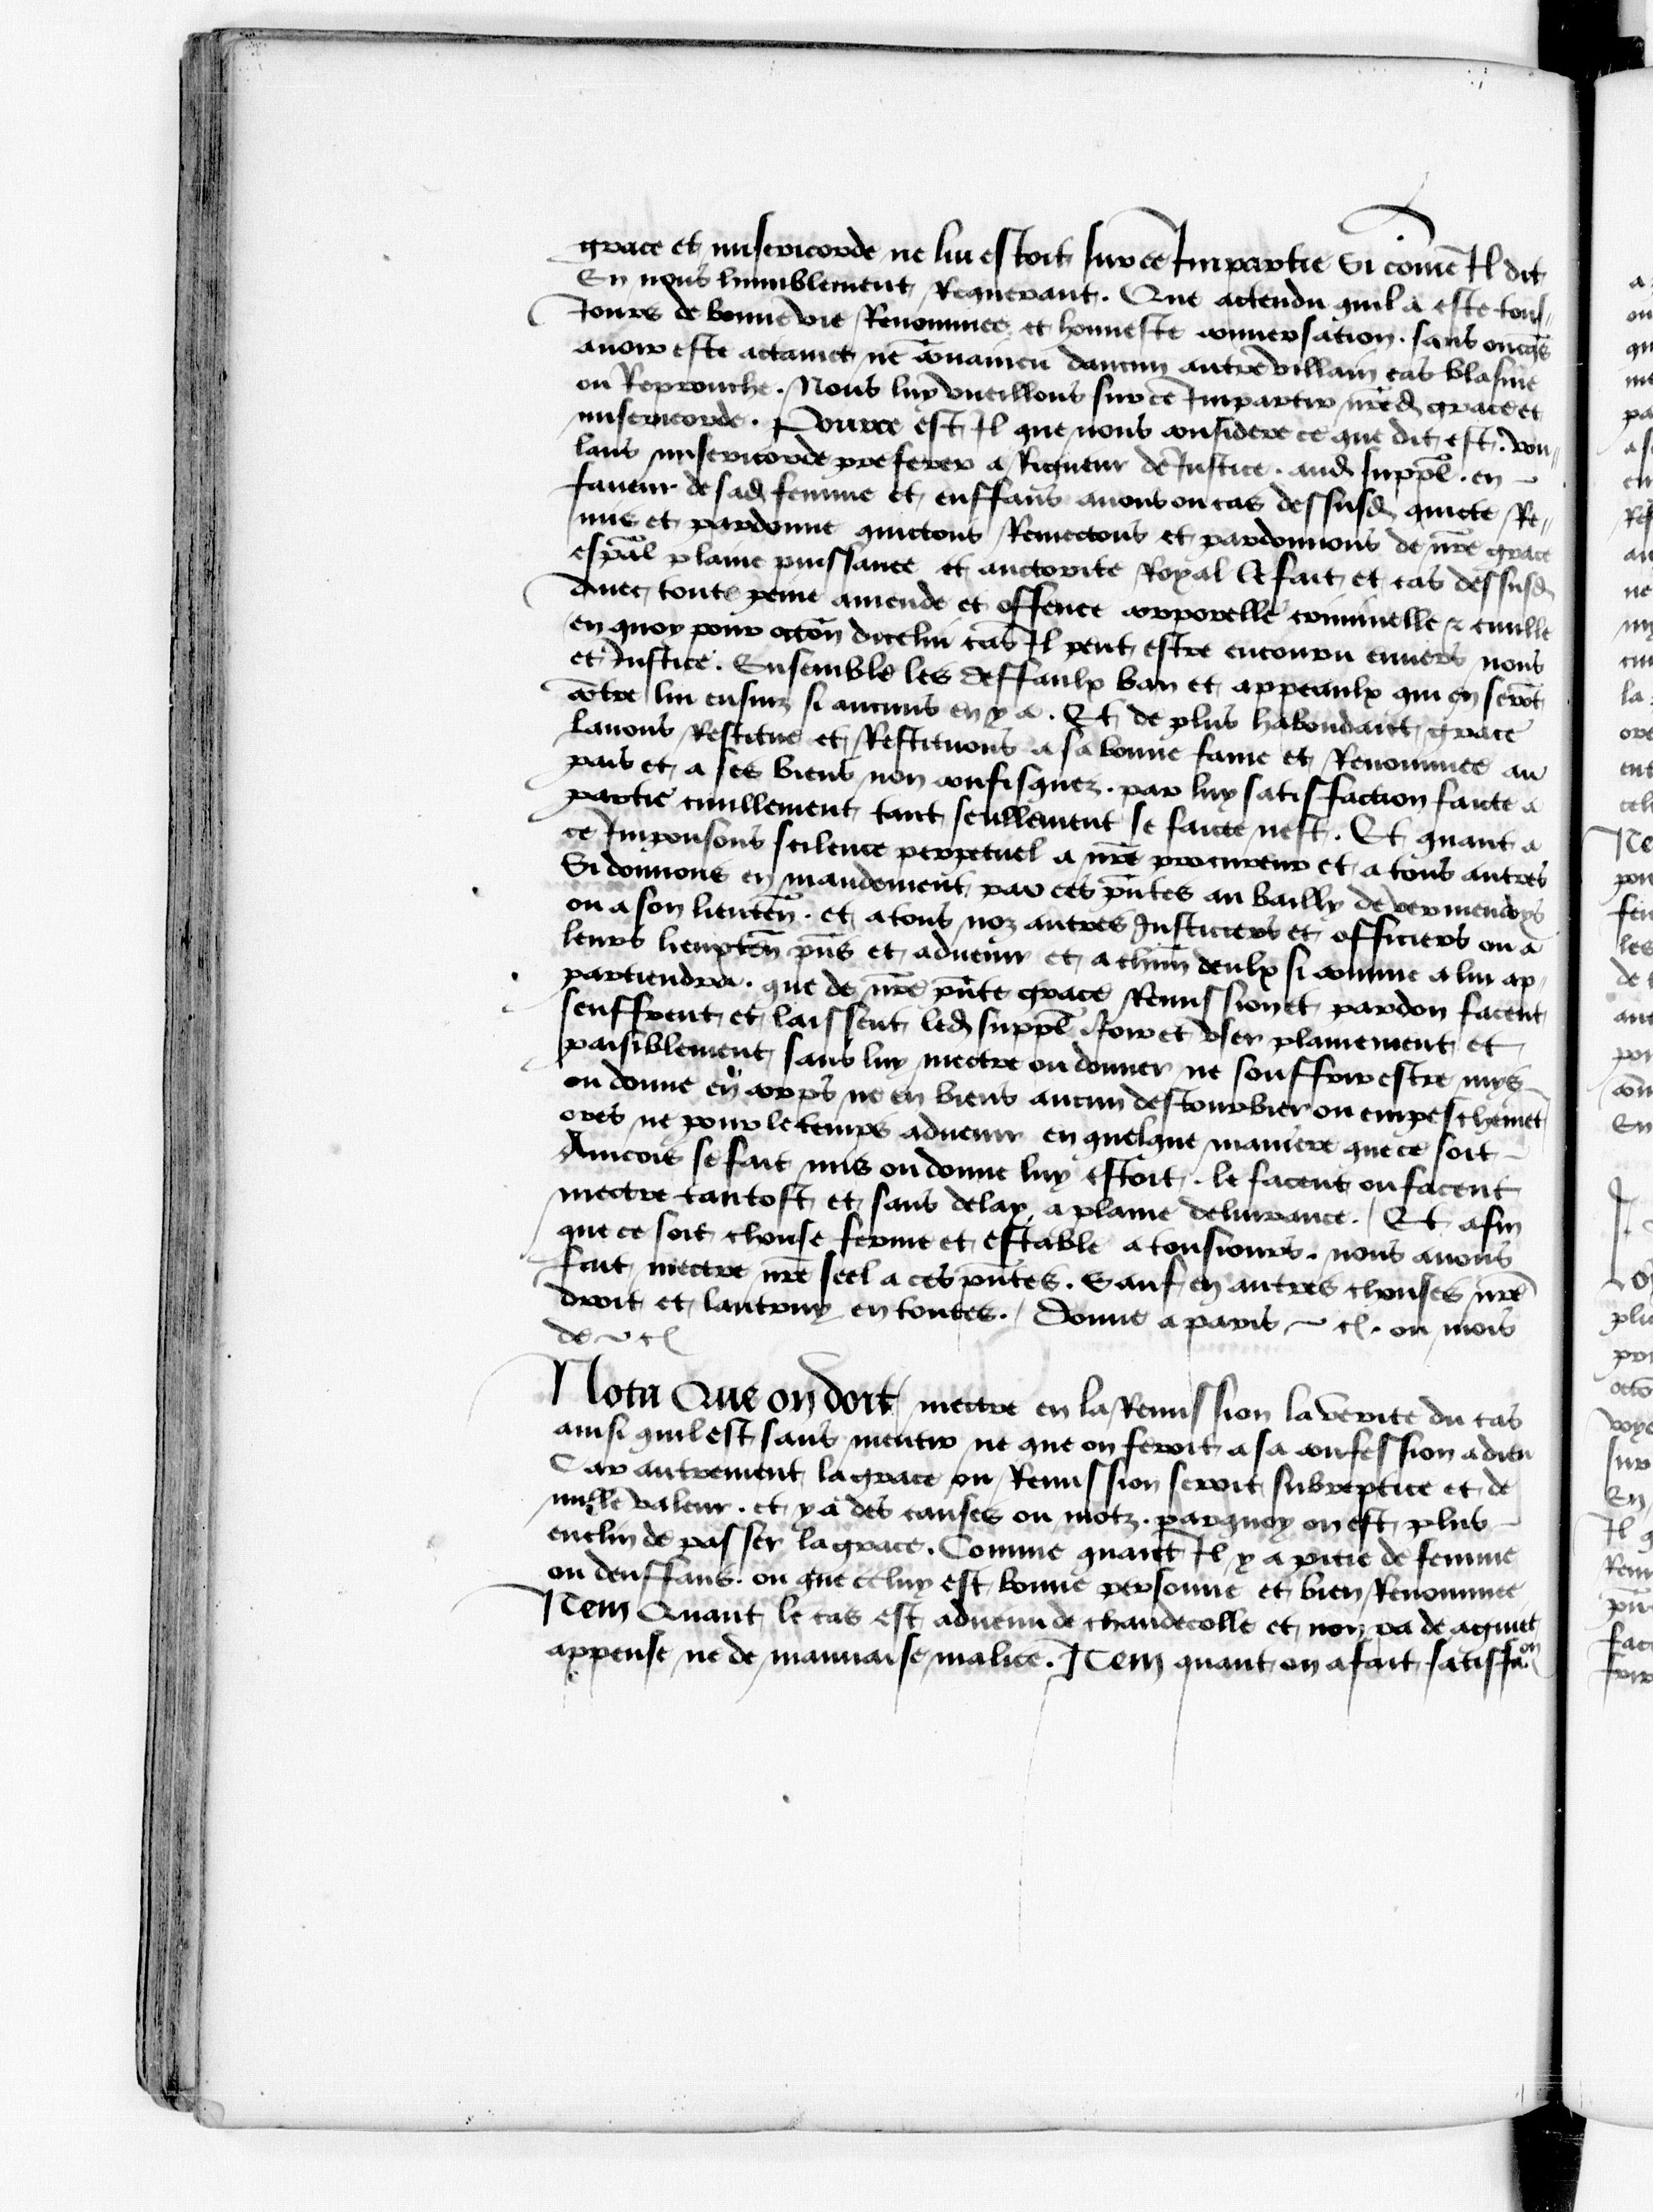 grace et misericorde ne lui estoit sur ce Impartie Si come Il dit
En nous humblement Requerant. Que actendu quil a este tous„
Jours de bonne vie Renommee et honneste conuersation. sans oncqs
auoir este actaint ne conuaincu daucun autre villain cas blasme
ou Reprouche. Nous luy vueillons sur ce Impartir nred grace et
misericorde. Pource est Il que nous considere ce que dit est. vou„
lans misericorde preferer a Rigueur de Justice. aud suppl. en
faueur de sad femme et enffans auons ou cas dessusd quicte Re„
mis et pardonne quictons Remectons et pardonnons de nre grace
espal plaine puissance et auctorite Royal Le fait et cas dessusd
Auec toute peine amende et offence corporelle criminelle et ciuille
en quoy pour occon dicelui cas Il peut estre encouru enuers nous
et Justice. Ensemble les deffaulx ban et appeaulx qui en seront
contre lui ensuiz si aucuns en y a. Et de plus habondant grace
Lauons Restitue et Restituons a sa bonne fame et Renommee au
pais et a ses biens non confisquez. par luy satisfaction faicte a
partie ciuillement tant seullement se faicte nest. Et quant a
ce Imponsons scilence perpetuel a nre procureur et a tous autres
Si donnons en mandement par ces pntes au bailly de vermendoys
ou a son lieuten. et a tous noz autres Justiciers et officiers ou a
leurs lieupten pns et aduenir et a chun deulx si comme a lui ap„
partiendra. que de nre pnte grace Remission et pardon facent
seuffrent et laissent led suppl Joir et vser plainement et
paisiblement sans luy mectre ou donner ne souffrir estre mys
ou donne en corps ne en biens aucun destourbier ou empeschemet
ores ne pour le temps aduenir en quelque maniere que ce soit
Aincois se fait mis ou donne luy estoit. le facent ou facent
mectre tantost et sans delay a plaine deliurance. Et afin
que ce soit chouse ferme et estable a tousiours. nous auons
fait mectre nre seel a ces pntes. Sauf en autres chouses nre
droit et lautruy en toutes. Donne a paris etc. ou mois
de etc
Nota Que on doit mectre en la Remission la verite du cas
ainsi quil est sans mentir ne que on feroit a sa confession a dieu
Car autrement la grace ou Remission seroit subreptice et de
nulle valeur. et y a des causes ou motz. par quoy on est plus
enclin de passer la grace. Comme quant Il y a pitie de femme
ou denffans. ou que celuy est bonne personne et bien Renommee
Item Quant le cas est aduenu de chaudecolle et non pa de aguiet
appense ne de mauuaise malice. Item quant on a fait satisfaon